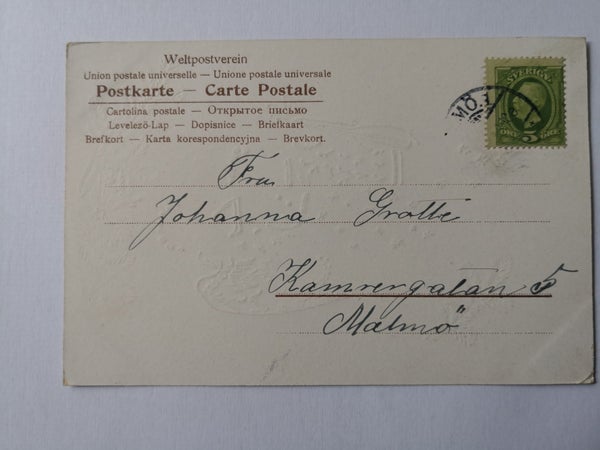 Weltpostverein
Union postale universelle — Unione postale universale
Postkarte — Carte Postale
Cartolina postale — Открытое письмо
Levelező-Lap — Dopisnice — Briefkaart
Brefkort — Karta korespondencyjna — Brevkort.
SVERIGE
5
ÖRE ÖRE
MÖ.1
Fru
Johanna Grotte
Kamrergatan 5
Malmö